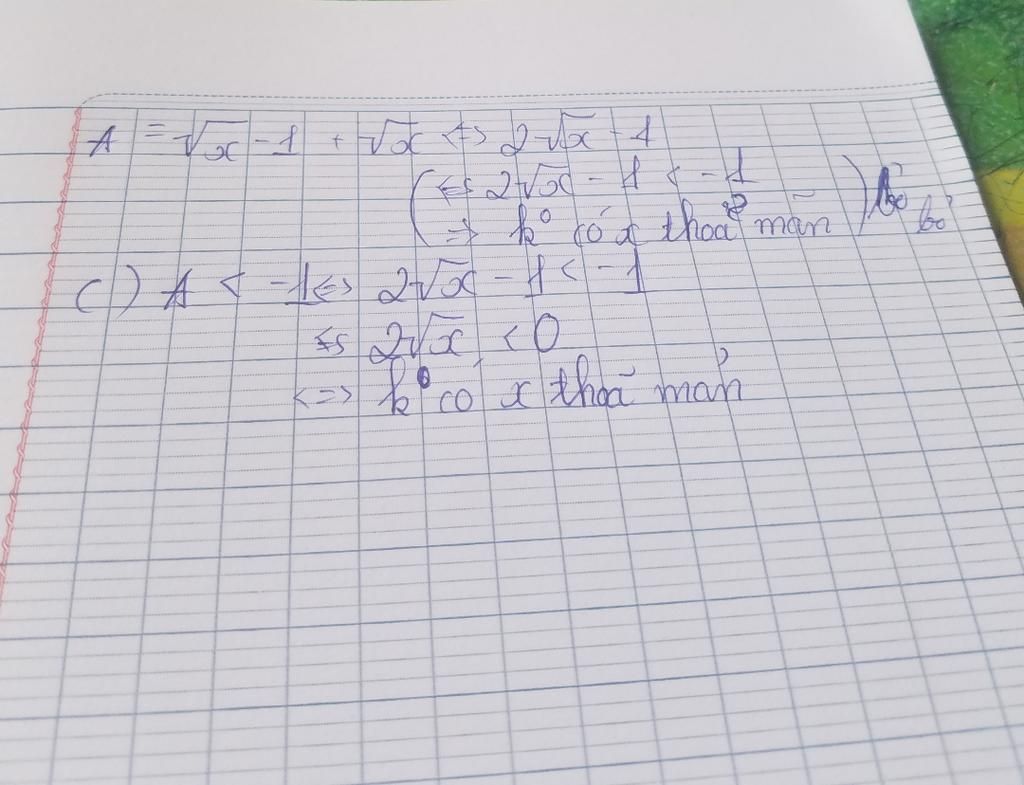 A = √x - 1 + √x <=> 2√x - 1
( <=> 2√x - 1 < -1
=> k° có x thoả mãn ) bỏ
C) A < -1 <=> 2√x - 1 < -1
<=> 2√x < 0
<=> k° có x thoã mản